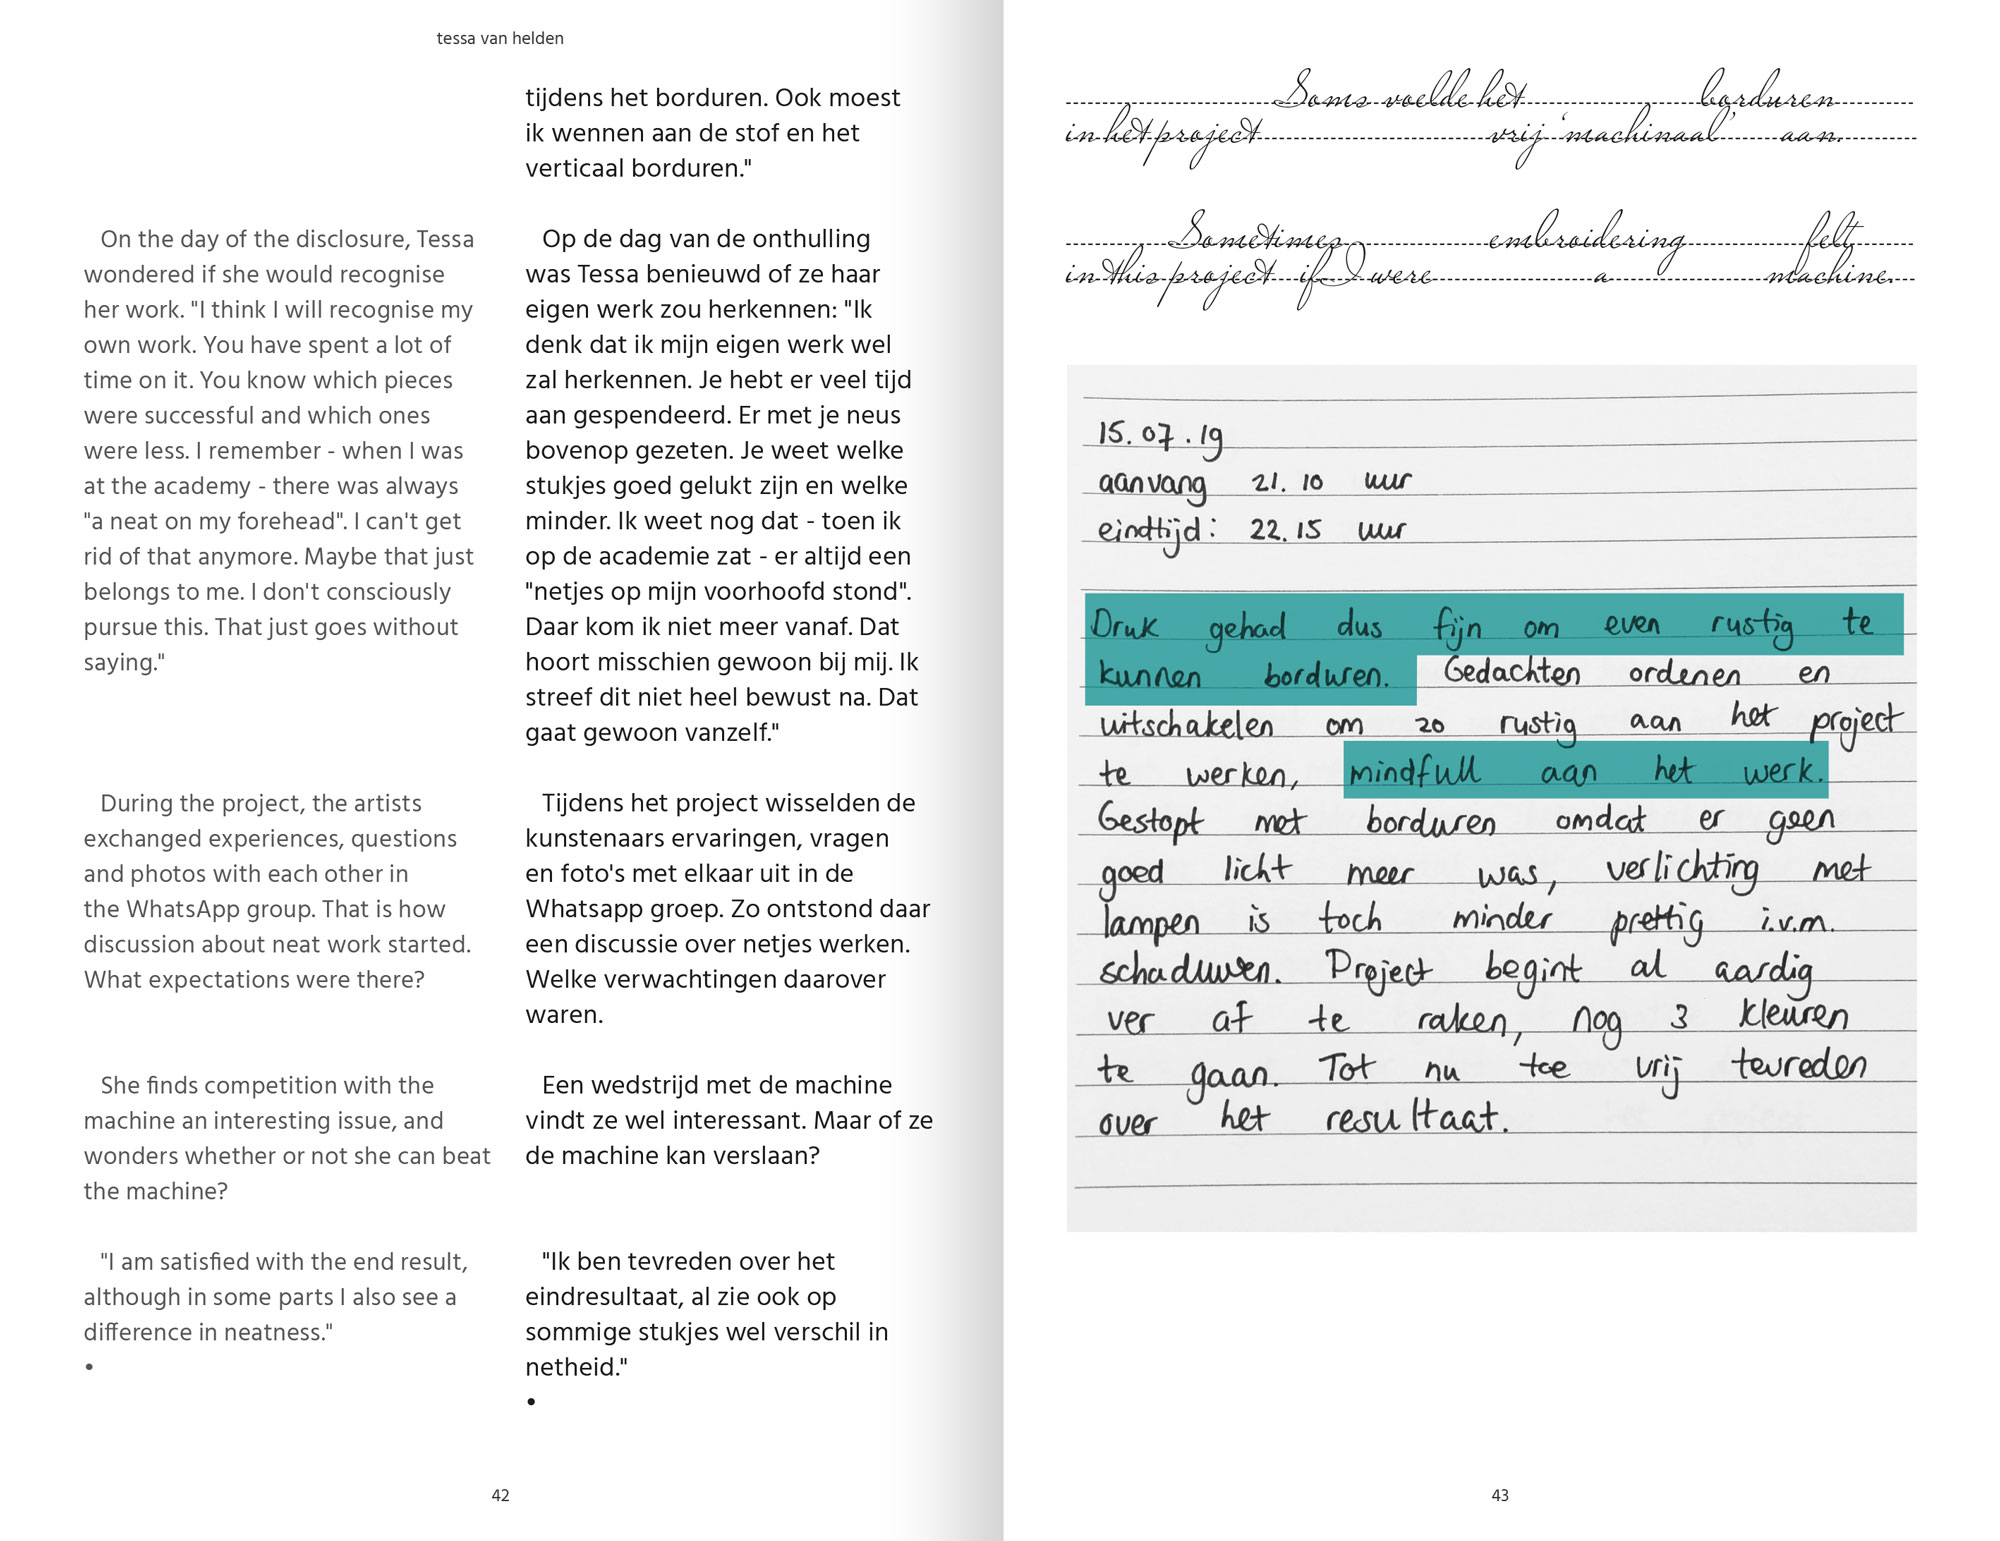 tessa van helden
On the day of the disclosure, Tessa
wondered if she would recognise
her work. "I think I will recognise my
own work. You have spent a lot of
time on it. You know which pieces
were successful and which ones
were less. I remember - when I was
at the academy - there was always
"a neat on my forehead". I can't get
rid of that anymore. Maybe that just
belongs to me. I don't consciously
pursue this. That just goes without
saying."
During the project, the artists
exchanged experiences, questions
and photos with each other in
the WhatsApp group. That is how
discussion about neat work started.
What expectations were there?
She finds competition with the
machine an interesting issue, and
wonders whether or not she can beat
the machine?
"I am satisfied with the end result,
although in some parts I also see a
difference in neatness."
•
tijdens het borduren. Ook moest
ik wennen aan de stof en het
verticaal borduren."
Op de dag van de onthulling
was Tessa benieuwd of ze haar
eigen werk zou herkennen: "Ik
denk dat ik mijn eigen werk wel
zal herkennen. Je hebt er veel tijd
aan gespendeerd. Er met je neus
bovenop gezeten. Je weet welke
stukjes goed gelukt zijn en welke
minder. Ik weet nog dat - toen ik
op de academie zat - er altijd een
"netjes op mijn voorhoofd stond".
Daar kom ik niet meer vanaf. Dat
hoort misschien gewoon bij mij. Ik
streef dit niet heel bewust na. Dat
gaat gewoon vanzelf."
Tijdens het project wisselden de
kunstenaars ervaringen, vragen
en foto's met elkaar uit in de
Whatsapp groep. Zo ontstond daar
een discussie over netjes werken.
Welke verwachtingen daarover
waren.
Een wedstrijd met de machine
vindt ze wel interessant. Maar of ze
de machine kan verslaan?
"Ik ben tevreden over het
eindresultaat, al zie ook op
sommige stukjes wel verschil in
netheid."
•
42
Soms voelde het borduren
in het project vrij 'machinaal' aan.
Sometimes embroidering felt
in this project if I were a machine.
15.07.19
aanvang 21.10 uur
eindtijd: 22.15 uur
Druk gehad dus fijn om even rustig te
kunnen borduren. Gedachten ordenen en
uitschakelen om zo rustig aan het project
te werken, mindfull aan het werk.
Gestopt met borduren omdat er geen
goed licht meer was, verlichting met
lampen is toch minder prettig i.v.m.
schaduwen. Project begint al aardig
ver af te raken, nog 3 kleuren
te gaan. Tot nu toe vrij tevreden
over het resultaat.
43